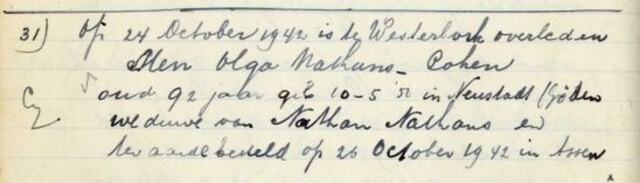 31) Op 24 October 1942 is te Westerbork overleden
Mevr Olga Nathans-Cohen
oud 92 jaar geb 10-5 51 in Neustadt
weduwe van Nathan Nathans en
ter aarde besteld op 26 October 1942 in Assen